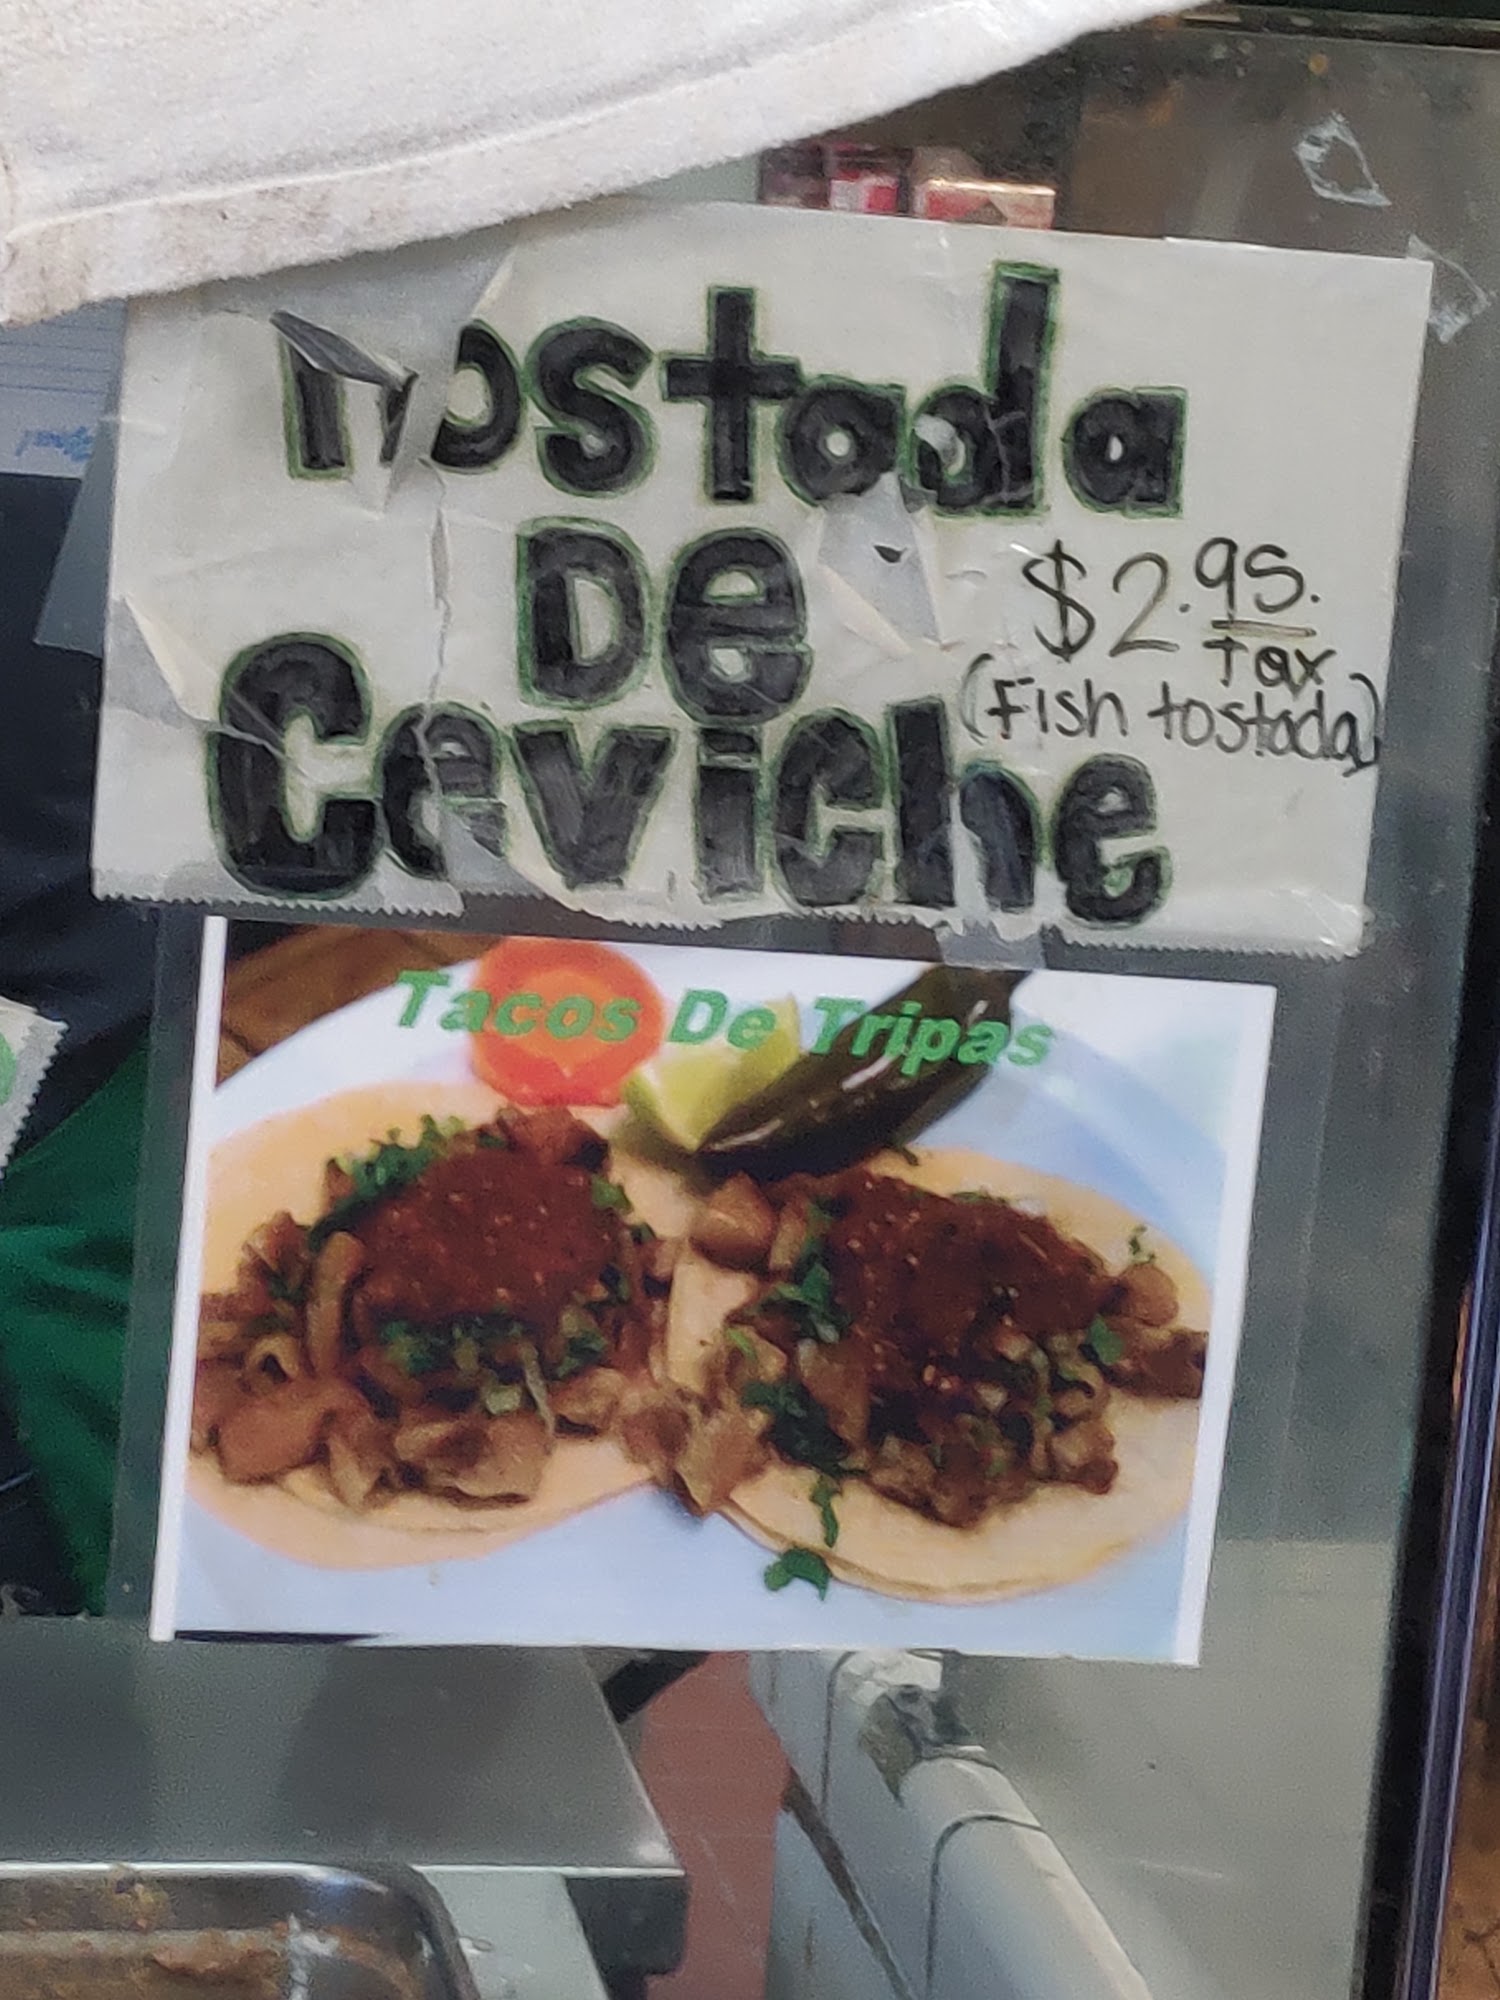 Tostada
De
$2.95.
Tax
(Fish tostada)
Ceviche
Tacos De Tripas